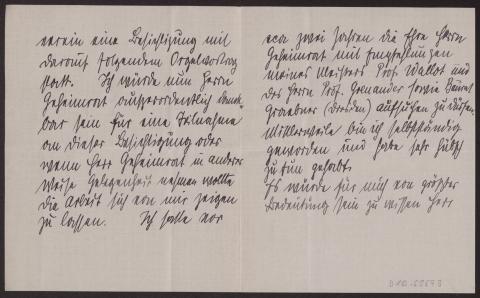 verein eine Besichtigung mit
darauf folgendem Orgelvortrag
statt. Ich würde nun Herrn
Geheimrat außerordentlich dank-
bar sein für eine Teilnahme
an dieser Besichtigung oder
wenn Herr Geheimrat in anderer
Weise Gelegenheit nehmen wollte
die Arbeit sich von mir zeigen
zu lassen. Ich hatte vor
zwei Jahren die Ehre Herrn
Geheimrat mit Empfehlungen
meiner Meisters Prof. Wallot und
des Herrn Prof. sowie Baurat
Graebner (Dresden) aufsuchen zu dürfen.
Mittlerweile bin ich selbständig
geworden und habe sehr hübsch
zu tun gehabt.
Es würde für mich von größter
Bedeutung sein zu wissen Herr